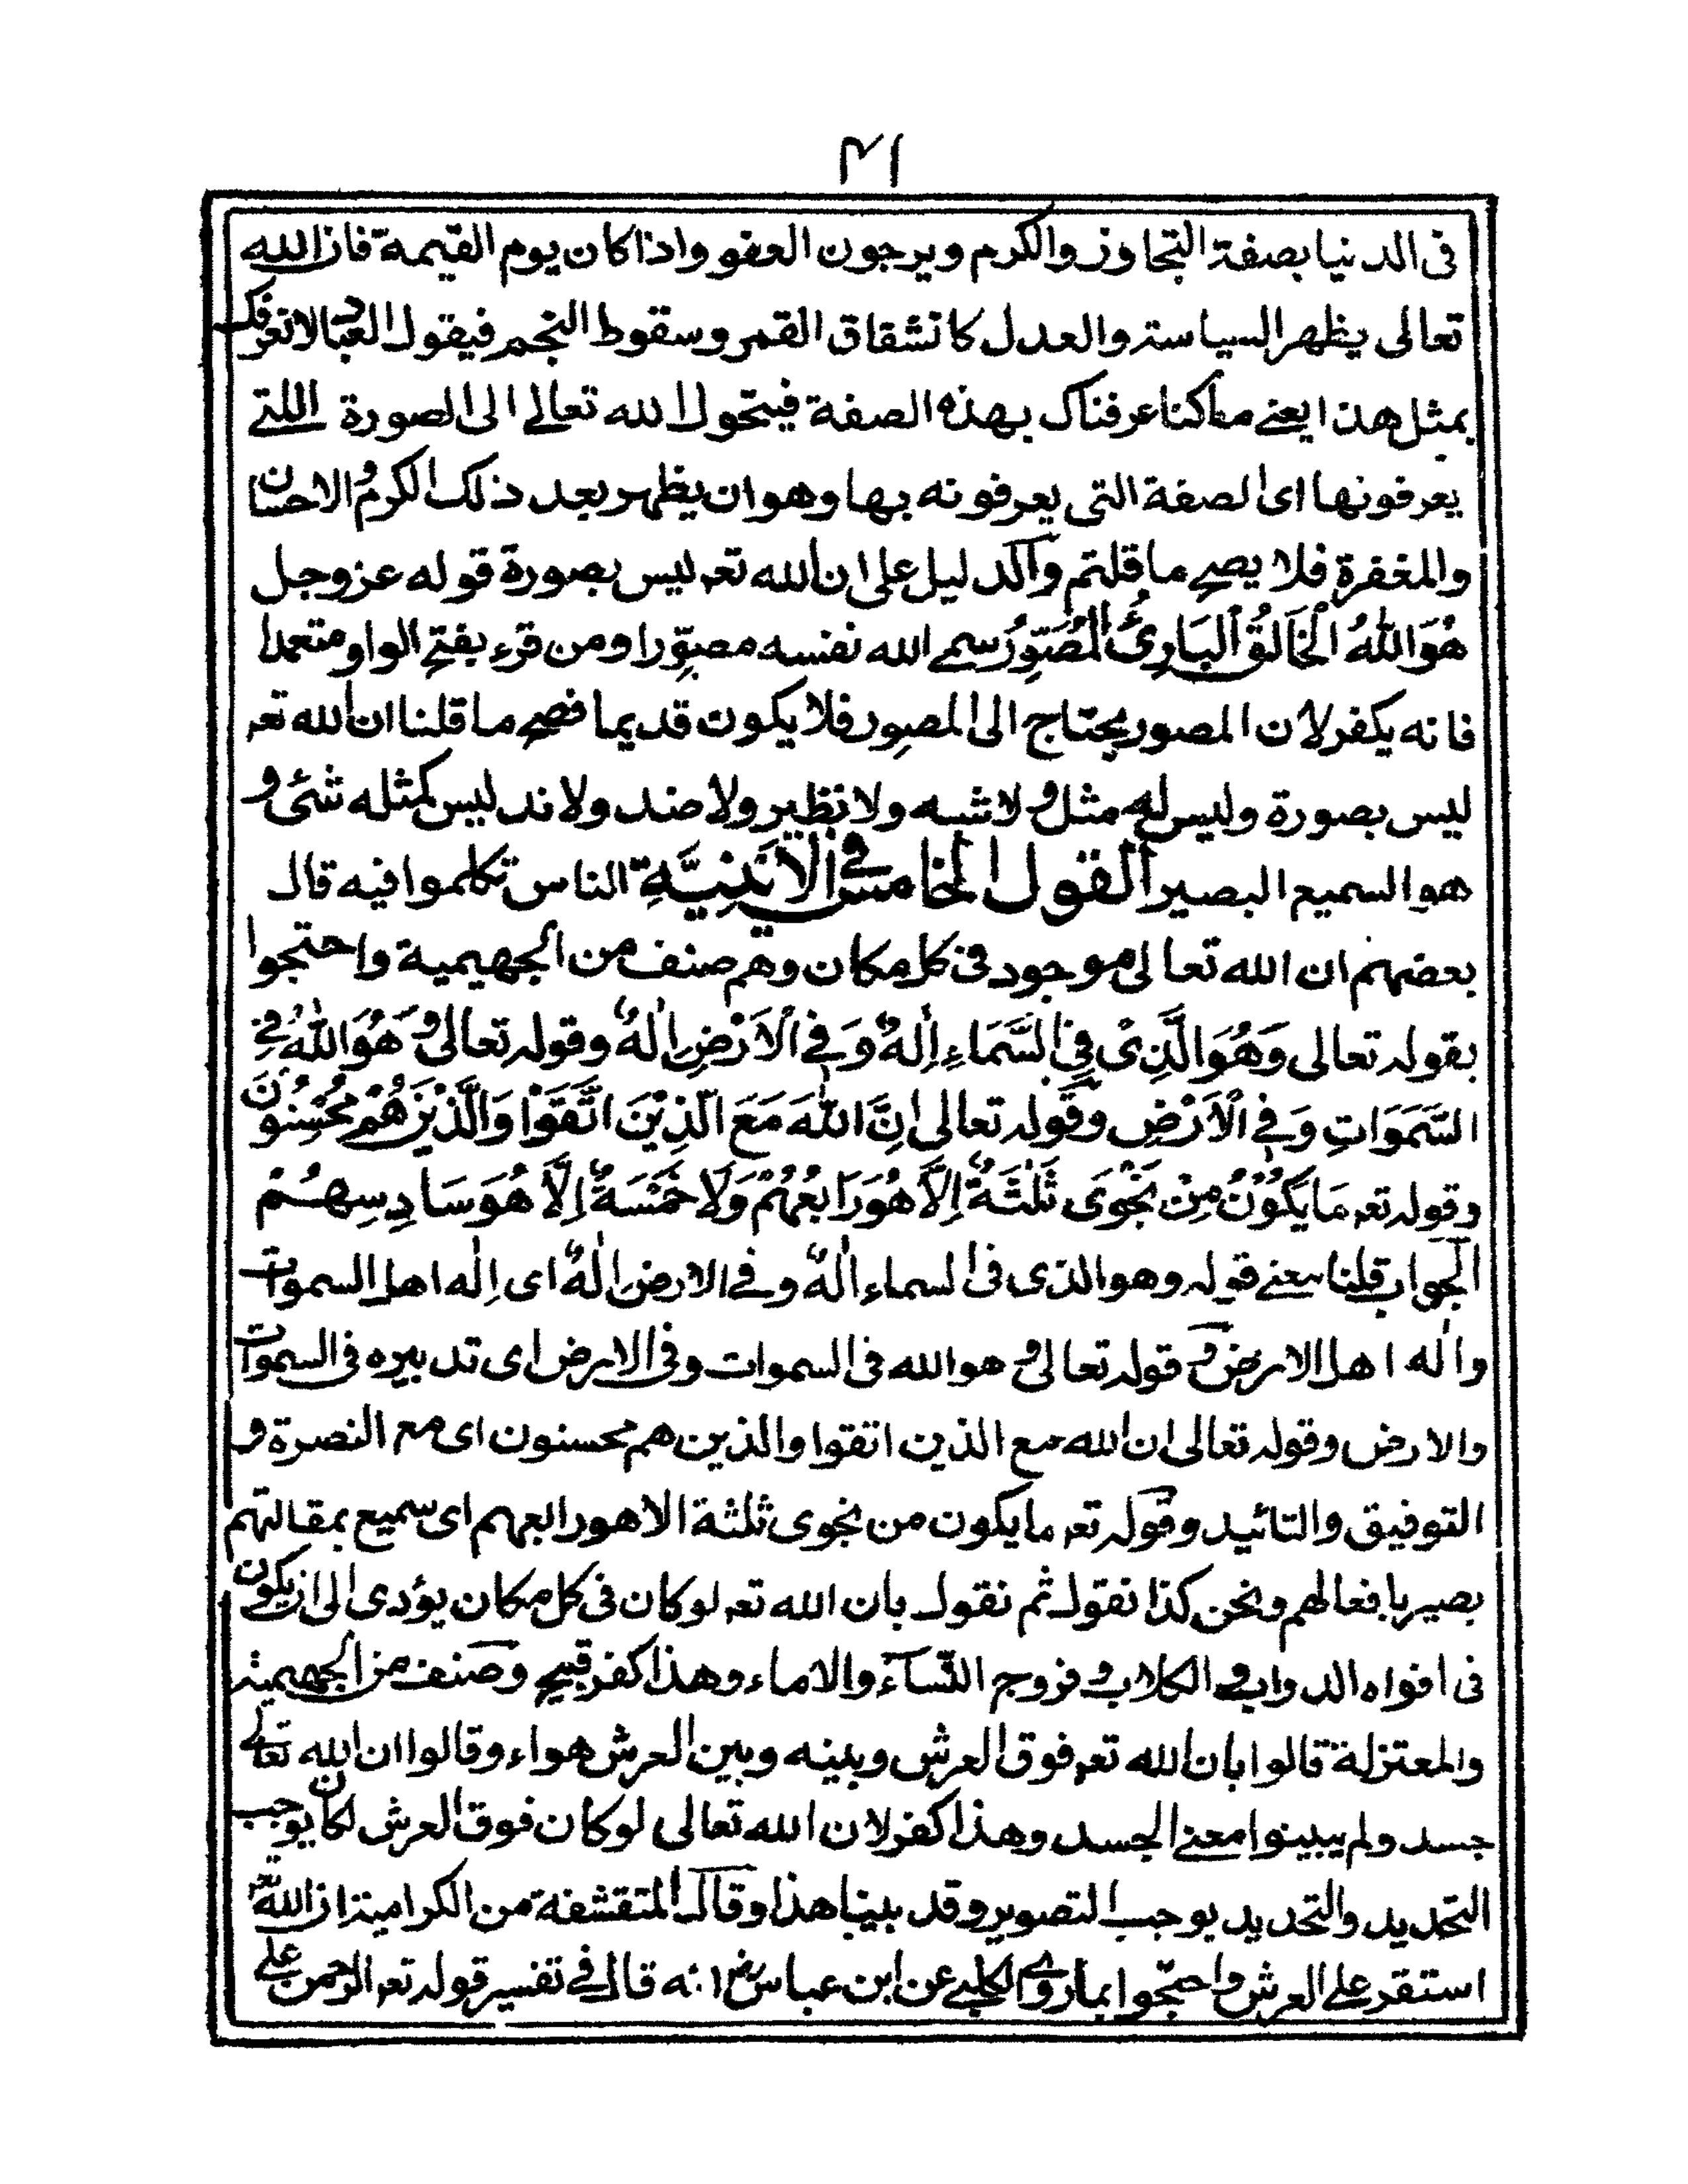 ١٣
فى الدنيا بصفة التجاوز والكرم ويرجون العفو واذا كان يوم القيمة فان الله
تعالى يظهر السياسة والعدل كانشقاق القمر وسقوط النجم فيقول العباد لا نعرفك
بمثل هذا يعنے ماكنا عرفناك بهذه الصفة فيتحول الله تعالے الى الصورة اللتے
يعرفونها اى الصفة التى يعرفونه بها وهو ان يظهر بعد ذلك الكرم والاحسان
والمغفرة فلا يصح ما قلتم والدليل على ان الله تعہ ليس بصورة قوله عز وجل
هُوَ اللّٰهُ الْخَالِقُ الْبَارِئُ الْمُصَوِّرُ سمے الله نفسه مصوِّرا ومن قرء بفتح الواو متعمدا
فانه يكفر لان المصور يحتاج الى المصوِر فلا يكون قديما فصح ما قلنا ان الله تعہ
ليس بصورة وليس له مثل ولا شبه ولا نظير ولا ضد ولا ند ليس كمثله شئ و
هو السميع البصير القول الخامس فى الاَيْنِيَّةِ الناس تكلموا فيه قال
بعضهم ان الله تعالى موجود فى كل مكان وهم صنف من الجهيمية واحتجوا
بقوله تعالى وَهُوَ الَّذِىْ فِى السَّمَاءِ اِلٰهٌ وَفِے الْاَرْضِ اِلٰهٌ وقوله تعالى وَهُوَ اللّٰهُ فِے
السَّمَوَاتِ وَفِے الْاَرْضِ وقوله تعالى اِنَّ اللّٰهَ مَعَ الَّذِيْنَ اتَّقَوْا وَالَّذِيْنَ هُمْ مُحْسِنُوْنَ
وقوله تعہ مَا يَكُوْنُ مِنْ نَجْوَى ثَلٰثَةٍ اِلَّا هُوَ رَابِعُهُمْ وَلَا خَمْسَةٍ اِلَّا هُوَ سَادِسِهُمْ
الجواب قلنا معنے قوله وهو الذى فى السماء اِلٰهٌ وفے الارض اِلٰهٌ اى اِلٰه اهل السموات
واله اهل الارض و قوله تعالى و هو الله فى السموات وفى الارض اى تدبيره فى السموات
والارض وقوله تعالى ان الله مع الذين اتقوا والذين هم محسنون اى مع النصرة و
التوفيق والتائيد وقوله تعہ ما يكون من نجوى ثلثة الا هو رابعهم اى سميع بمقالتهم
بصير بافعالهم ونحن كذا نقول ثم نقول بان الله تعہ لو كان فى كل مكان يؤدى الى ان يكون
فى افواه الدواب و الكلاب و فروج النسآء والاماء وهذا كفر قبيح وصنف من الجهمية
والمعتزلة قالوا بان الله تعہ فوق العرش وبينه وبين العرش هواء وقالوا ان الله تعالے
جسد ولم يبينوا معنے الجسد وهذا كفر لان الله تعالى لو كان فوق العرش لكان يوجب
التحديد والتحديد يوجب التصوير وقد بينا هذا وقال المتقشفة من الكرامية ان الله
استقر على العرش واحتجوا بما روى الكلبے عن ابن عباس رض انه قال فے تفسير قوله تعہ الرحمن على